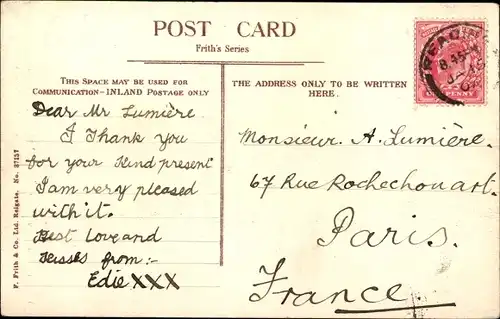 POST CARD
Frith's Series
THIS SPACE MAY BE USED FOR
COMMUNICATION—INLAND POSTAGE ONLY
Dear Mr Lumière
I Thank you
for your Kind present
I am very pleased
with it.
Best love and
Kisses from:-
Edie XXX
F. Frith & Co. Ltd. Reigate. No. 27157
THE ADDRESS ONLY TO BE WRITTEN
HERE.
Monsieur. A. Lumière.
67 Rue Rochechouart.
Paris.
France.
READING
ONE PENNY